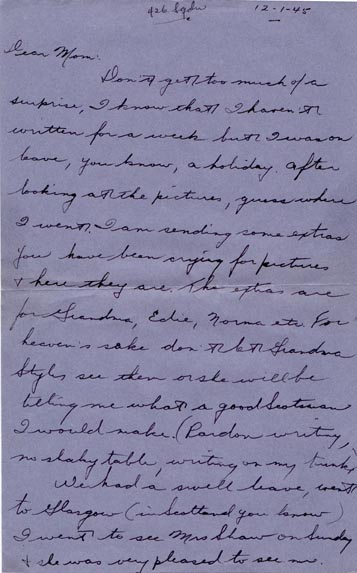 426 Sqdn
12-1-45
Dear Mom:
Don't get too much of a
surprise, I know that I haven't
written for a week but I was on
leave, you know, a holiday. After
looking at the pictures, guess where
I went. I am sending some extras
you have been crying for pictures
+ here they are. The extras are
for Grandma, Edie, Norma etc. For
heaven's sake don't let Grandma
Styles see them or she will be
telling me what a good Scotsman
I would make. (Pardon writing,
no shaky table, writing on my trunk)
We had a swell leave, went
to Glasgow (in Scotland you know)
I went to see Mrs Shaw on Sunday
+ she was very pleased to see me.